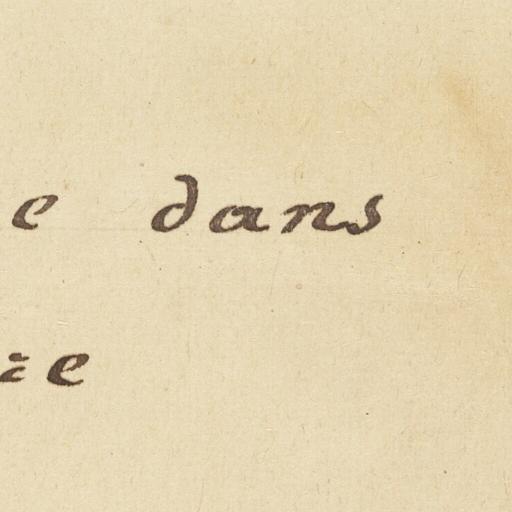 e dans
e